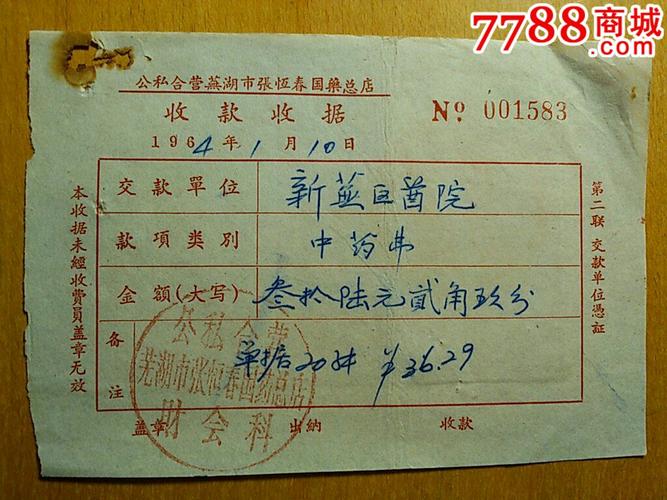 7788商城
.com
公私合营蕪湖市張恆春国藥总店
收款收据
№ 001583
1964年1月10日
交款單位 新蕪区醫院
款項类別 中药弗
金額(大写) 叁拾陆元貳角玖分
备注 单据20张 ¥36.29
盖章 出納 收款
本收据未經收費員盖章无效
第二联 交款單位憑証
公私合营
芜湖市张恒春国药总店
財会科